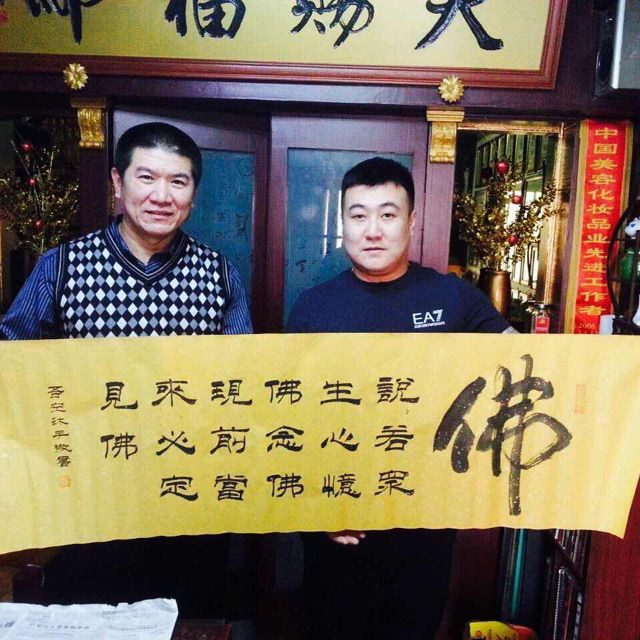 天賜福
中国美容化妆品业先进工作者
EA7
EMPORIO ARMANI
佛
說若眾
生心憶
佛念佛
現前當
來必定
見佛